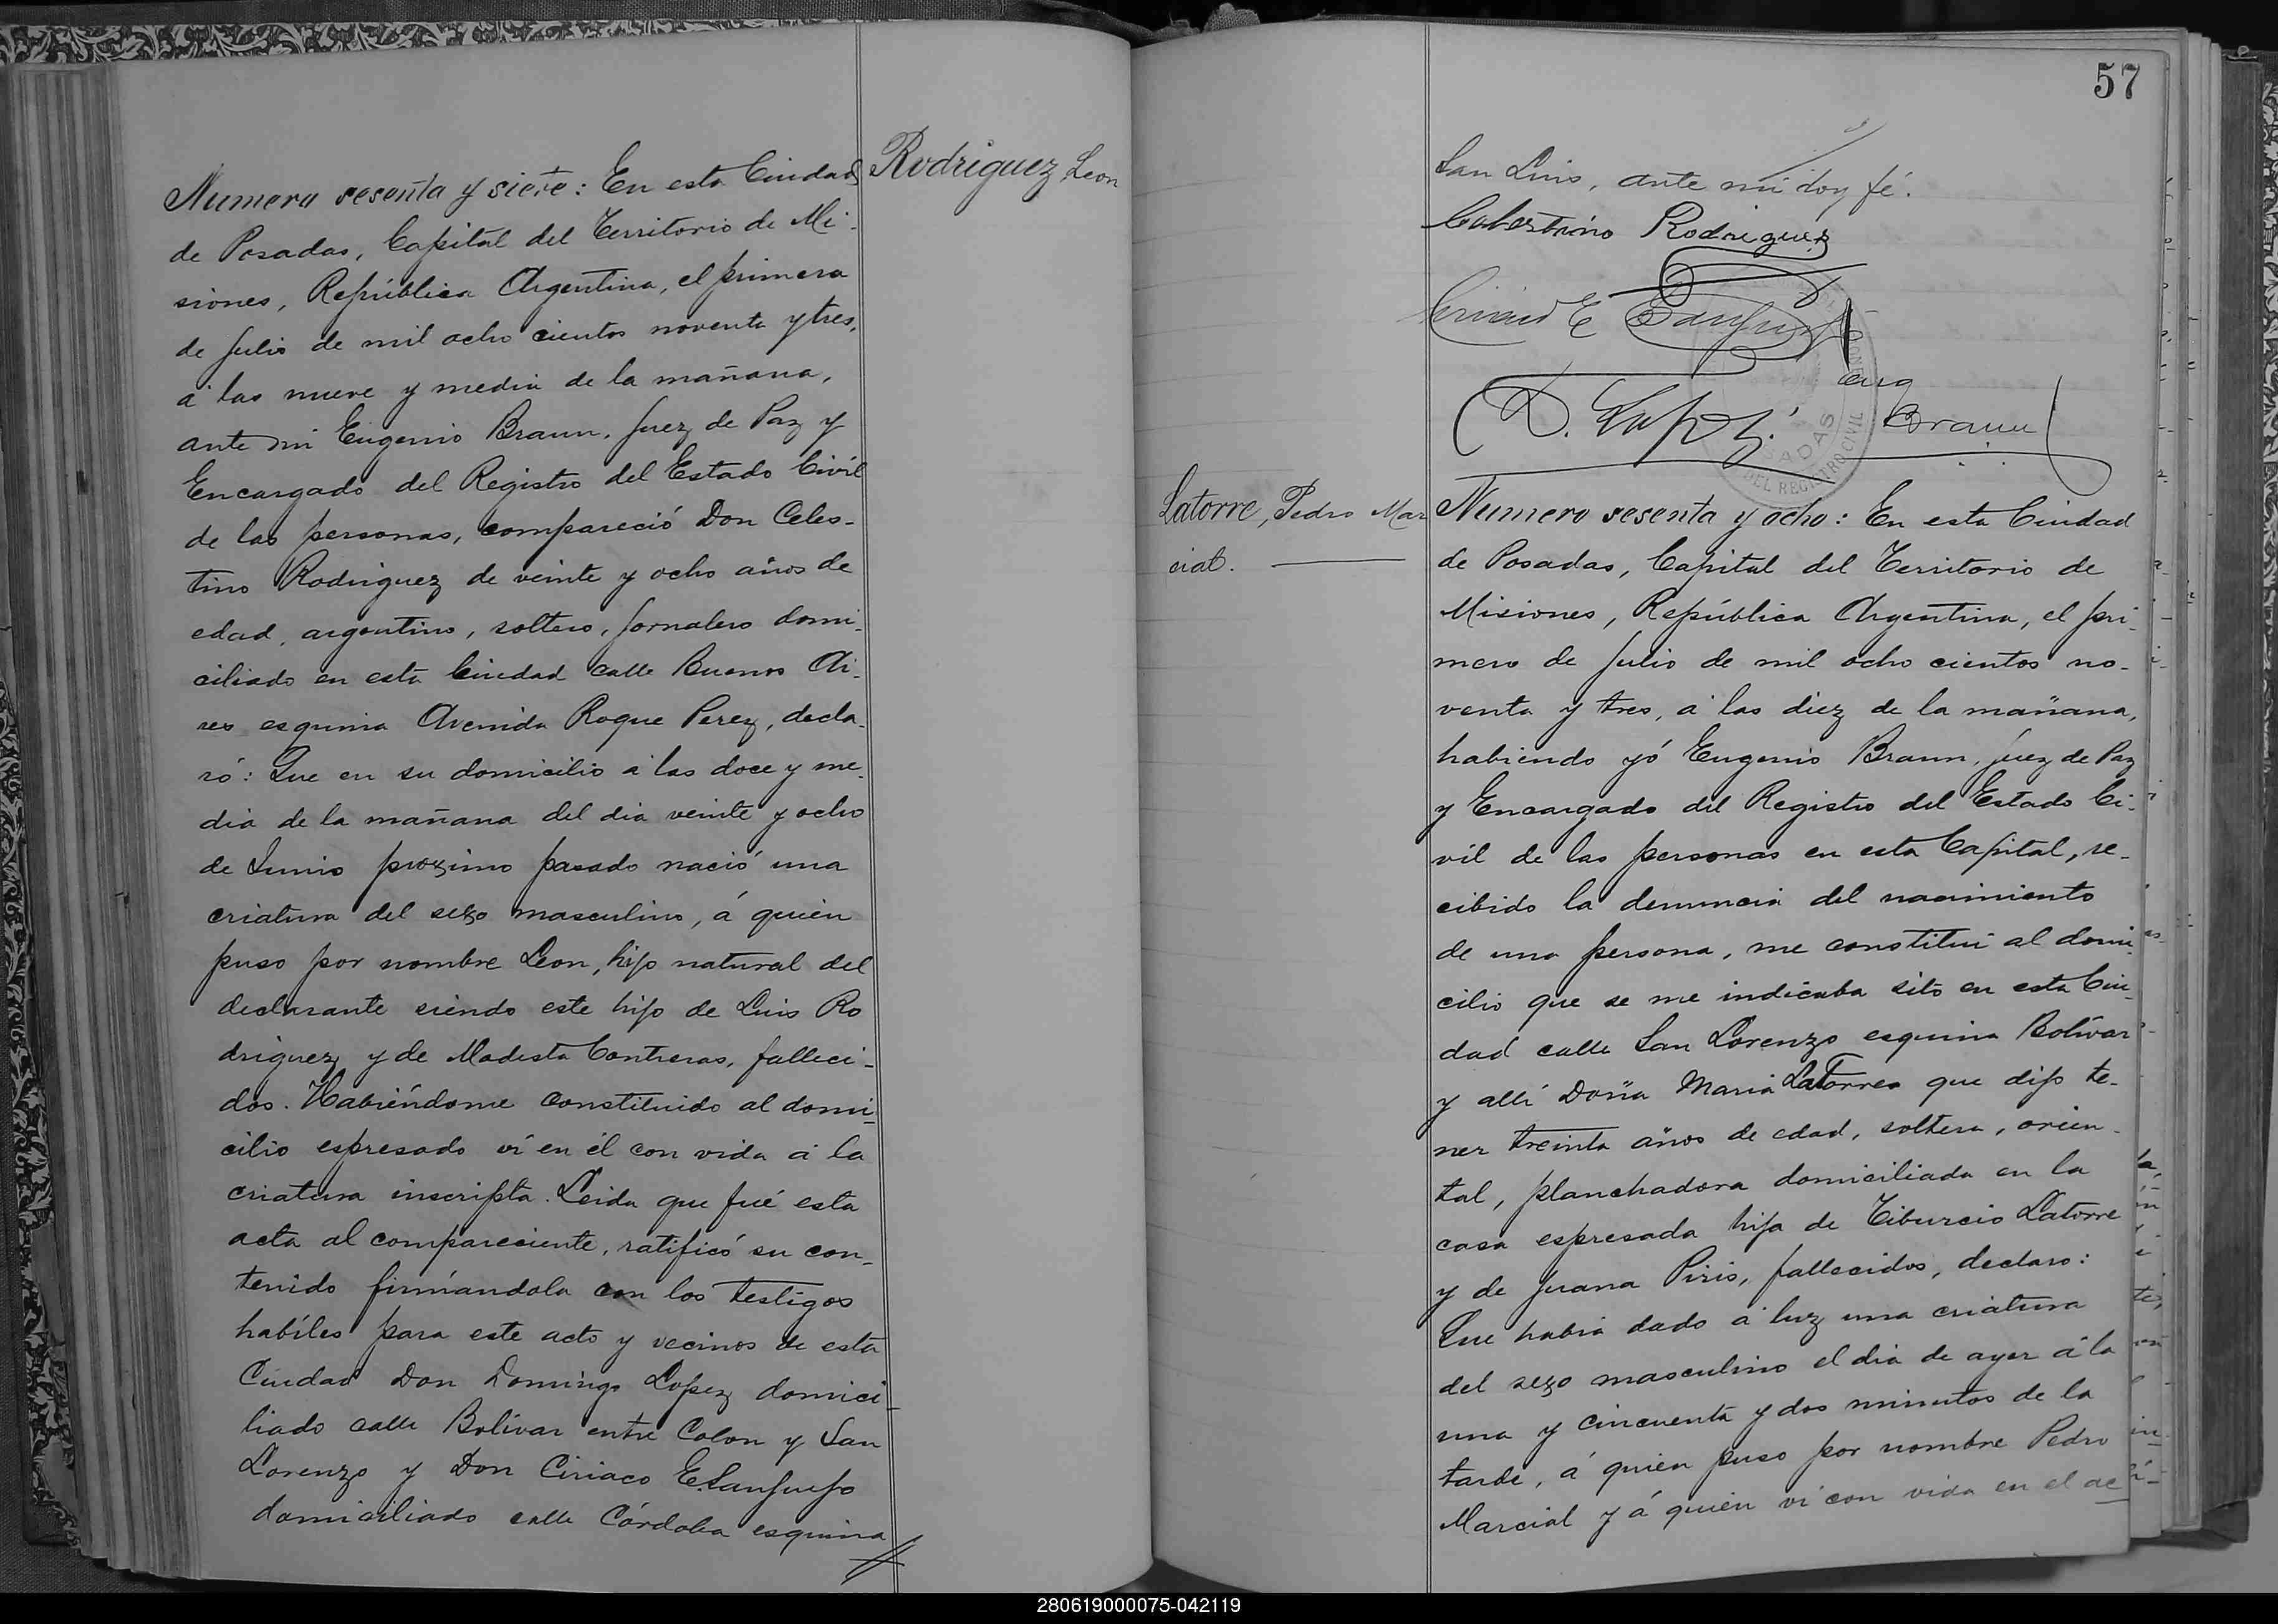 Numero sesenta y siete: En esta Ciudad
de Posadas, Capital del Territorio de Mi-
siones, República Argentina, el primero
de Julio de mil ocho cientos noventa y tres,
á las nueve y media de la mañana,
ante mi Eugenio Braun, Juez de Paz y
Encargado del Registro del Estado Civil
de las personas, compareció Don Celes-
tino Rodriguez de veinte y ocho años de
edad, argentino, soltero, jornalero domi-
ciliado en esta Ciudad calle Buenos Ai-
res esquina Avenida Roque Perez, decla-
ró: Que en su domicilio á las doce y me-
dia de la mañana del dia veinte y ocho
de Junio proximo pasado nació una
criatura del sexo masculino, á quien
puso por nombre Leon, hijo natural del
declarante siendo este hijo de Luis Ro
driguez y de Modesta Contreras, falleci-
dos. Habiéndome constituido al domi-
cilio espresado ví en él con vida á la
criatura inscripta. Leida que fué esta
acta al compareciente, ratificó su con-
tenido firmándola con los testigos
habiles para este acto y vecinos de esta
Ciudad Don Domingo Lopez domici-
liado calle Bolívar entre Colon y San
Lorenzo y Don Ciriaco E.
domiciliado calle Córdoba esquina
Rodriguez Leon
57
San Luis, ante mi doy fé.
Celestino Rodriguez
E
D. Lopez
Eug Braun
POSADAS
DEL REGISTRO CIVIL
Latorre, Pedro Mar
cial.
Numero sesenta y ocho: En esta Ciudad
de Posadas, Capital del Territorio de
Misiones, República Argentina, el pri-
mero de Julio de mil ocho cientos no-
venta y tres, á las diez de la mañana,
habiendo yó Eugenio Braun, Juez de Paz
y Encargado del Registro del Estado Ci-
vil de las personas en esta Capital, re-
cibido la denuncia del nacimiento
de una persona, me constituí al domi-
cilio que se me indicaba sito en esta Ciu-
dad calle San Lorenzo esquina Bolívar
y allí Doña Maria LaTorre que dijo te-
ner treinta años de edad, soltera, orien-
tal, planchadora domiciliada en la
casa espresada hija de Tiburcio Latorre
y de Juana Piris, fallecidos, declaro:
Que habia dado á luz una criatura
del sexo masculino el dia de ayer á la
una y cincuenta y dos minutos de la
tarde, á quien puso por nombre Pedro
Marcial y á quien ví con vida en el ac
280619000075-042119